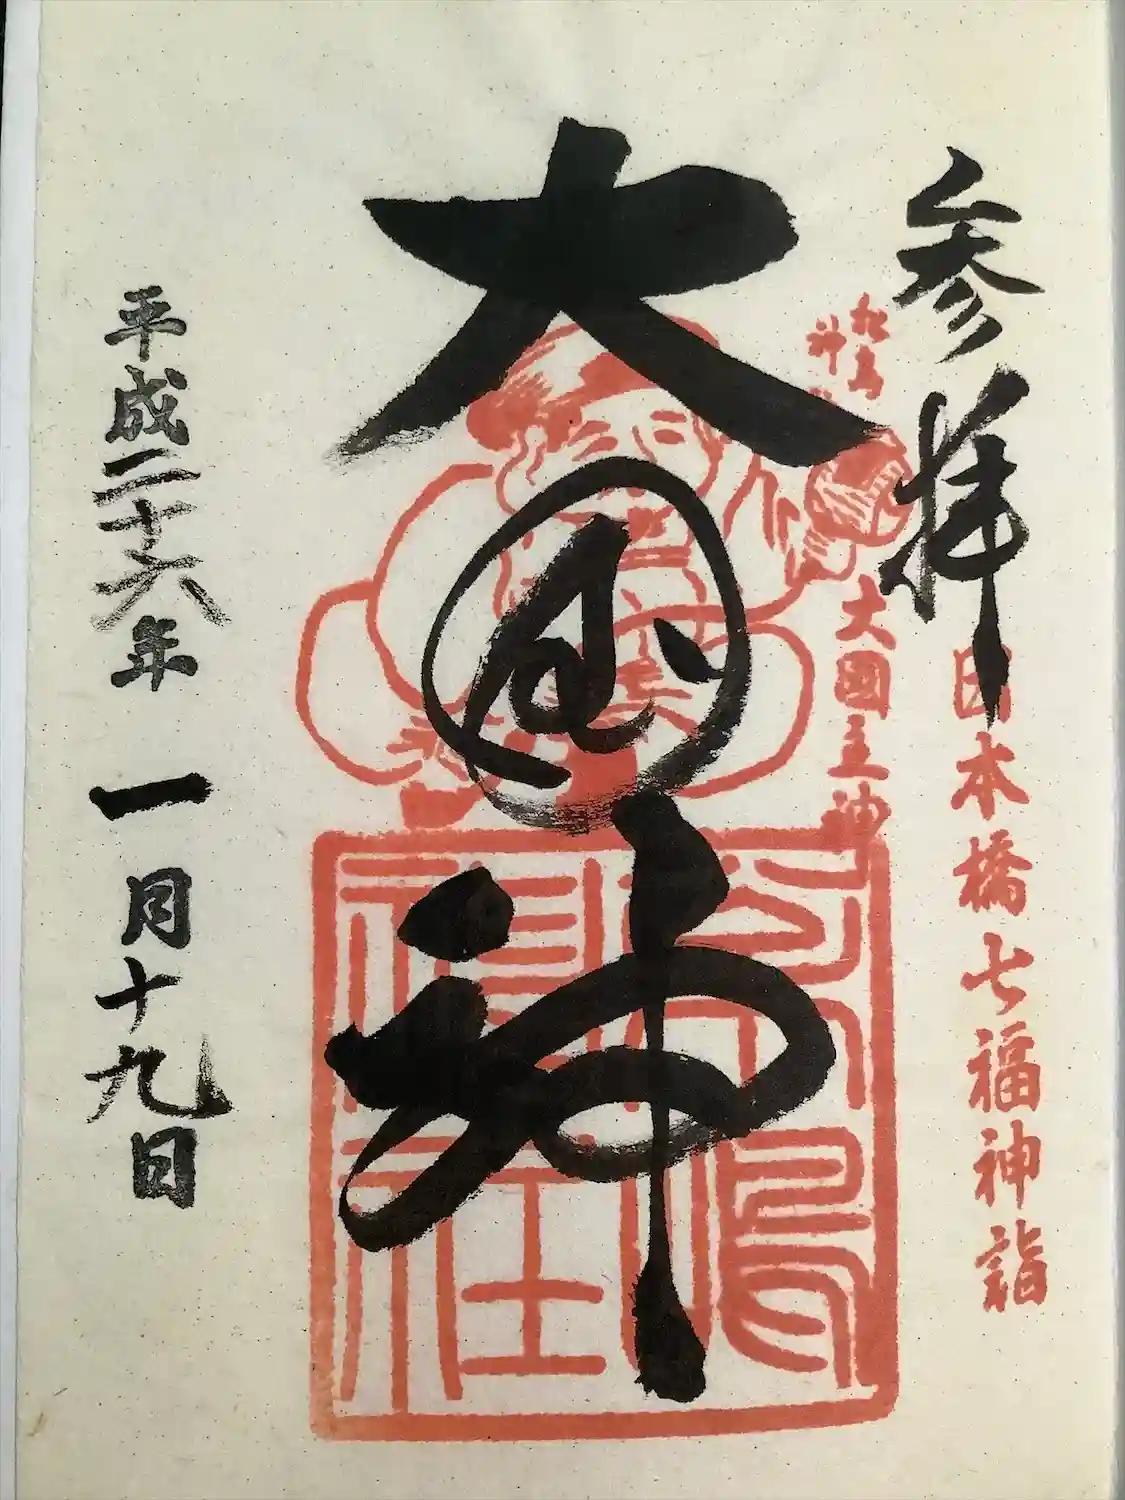 参拝
日本橋七福神詣
松島
神
大國主神
大国神
松島神社
平成二十六年一月十九日